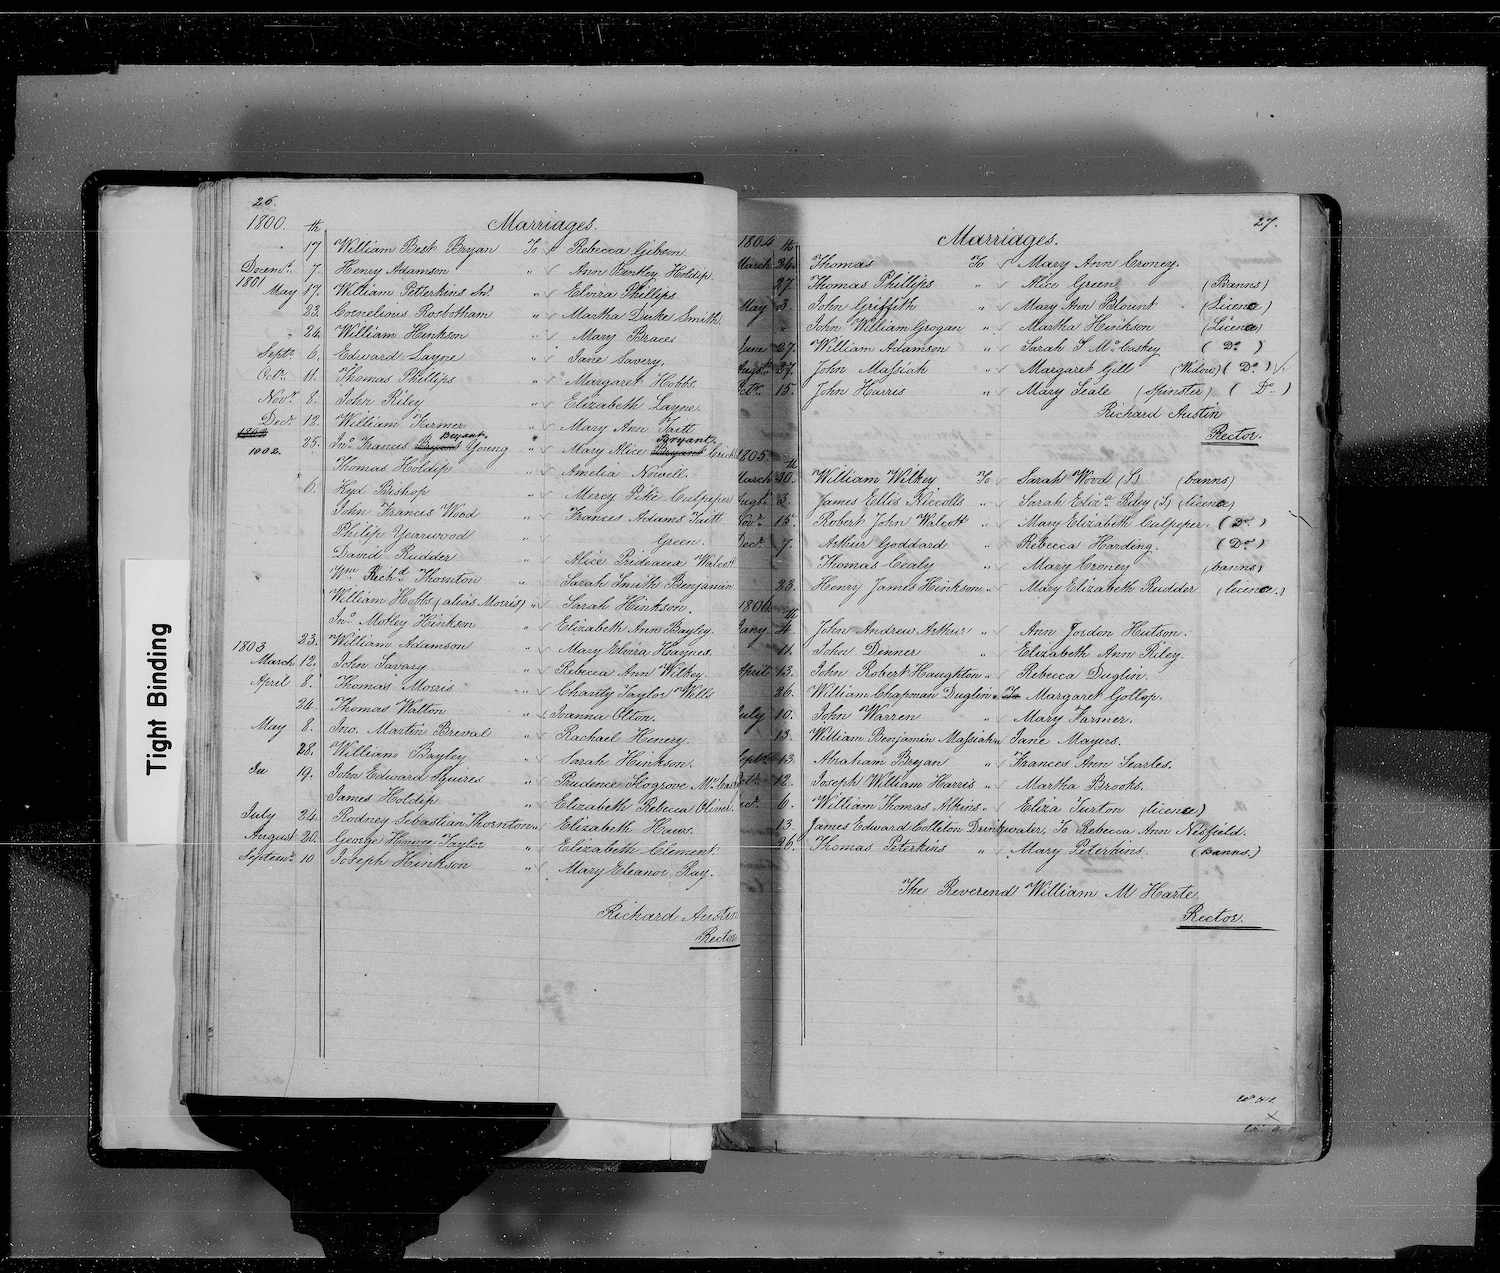 26.
1800. th Marriages.
" 17 William Best Bryan To Rebecca Gibson
Decemr. 7. Henry Adamson " Ann Bentley Holdip
1801
May 17. William Petterkins Snr " Elvira Phillips
23. Cornelious Rosbotham " Martha Duke Smith
" 24 William Hinkson " Mary Braces
Septr. 6. Edward Layne " Jane Savery.
Octr. 11. Thomas Phillips " Margaret Hobbs
Novr. 8. John Riley " Elizabeth Layne
Decr. 12. William Farmer " Mary Ann Taitt
1802. 25. Jno. Francis Bryan Bryant Young " Mary Alice Bryant
Thomas Holdip " Amelia Nowell.
" 6. Hyd Bishop " Mercy Pike Culpeper
John Francis Wood " Frances Adams Taitt
Philip Yearwood " Green.
David Rudder " Alice Prideaux Walcott
Wm Richd Thornton " Sarah Smith Benjamin
William Hobbs (alias Morris) " Sarah Hinkson.
Jno. Motley Hinkson " Elizabeth Ann Bayley.
1803 23. William Adamson " Mary Elvira Haynes
March 12. John Savary " Rebecca Ann Wilkey
April 8. Thomas Morris " Charity Taylor Wills
24. Thomas Walton " Joanna Olton.
May 8. Jno. Martin Breval " Rachael Henery.
28. William Bayley " Sarah Hinkson.
Ju 19. John Edward Squires " Prudence Hosgrove
James Holdip " Elizabeth Rebecca Oliver.
July 24. Rodney Sebastian Thornton " Elizabeth Haws.
August 20. George Taylor " Elizabeth Clement.
Septemr. 10 Joseph Hinkson " Mary Eleanor Ray.
Richard Austin
Rector
27.
1804 th Marriages.
March 24. Thomas To Mary Ann Croney.
27. Thomas Phillips " Alice Green (Banns)
May 3. John Griffith " Mary Ann Blount (Licence)
" John William Grogan " Martha Hinkson (Licence)
June 27. William Adamson " Sarah T McCaskey ( Do )
Augst. 27. John Massiah " Margaret Gill (Widow) ( Do )
Octr. 15. John Harris " Mary Seale (Spinster) ( Do )
Richard Austin
Rector.
1805 th
March 30. William Wilkey To Sarah Wood (S) (banns)
Augt. 3. James Ellis Niccolls " Sarah Eliza. Riley (S) (licence)
Novr. 15. Robert John Walcott " Mary Elizabeth Culpeper. ( Do )
Decr. 7. Arthur Goddard " Rebecca Harding. ( Do )
Thomas Cealy " Mary Croney (banns)
23. Henry James Hinkson " Mary Elizabeth Rudder (licence.)
1806 th
Jany 4. John Andrew Arthur " Ann Jordon Hutson.
11. John Denner " Elizabeth Ann Riley
April 13. John Robert Haughton " Rebecca Duglin.
26. William Chapman Duglin " To Margaret Gollop.
July 10. John Warren " Mary Farmer.
13. William Benjamin Massiah " Jane Mayers.
Septr. 13. Abraham Bryan " Frances Ann Searles.
Octr. 12. Joseph William Harris " Martha Brooks.
Decr. 6. William Thomas Atkins " Eliza Turton (licence)
13. James Edward Colleton Drinkwater, To Rebecca Ann Nesfield.
26. Thomas Peterkins " Mary Peterkins. (Banns.)
The Reverend William M Harte
Rector.
Tight Binding